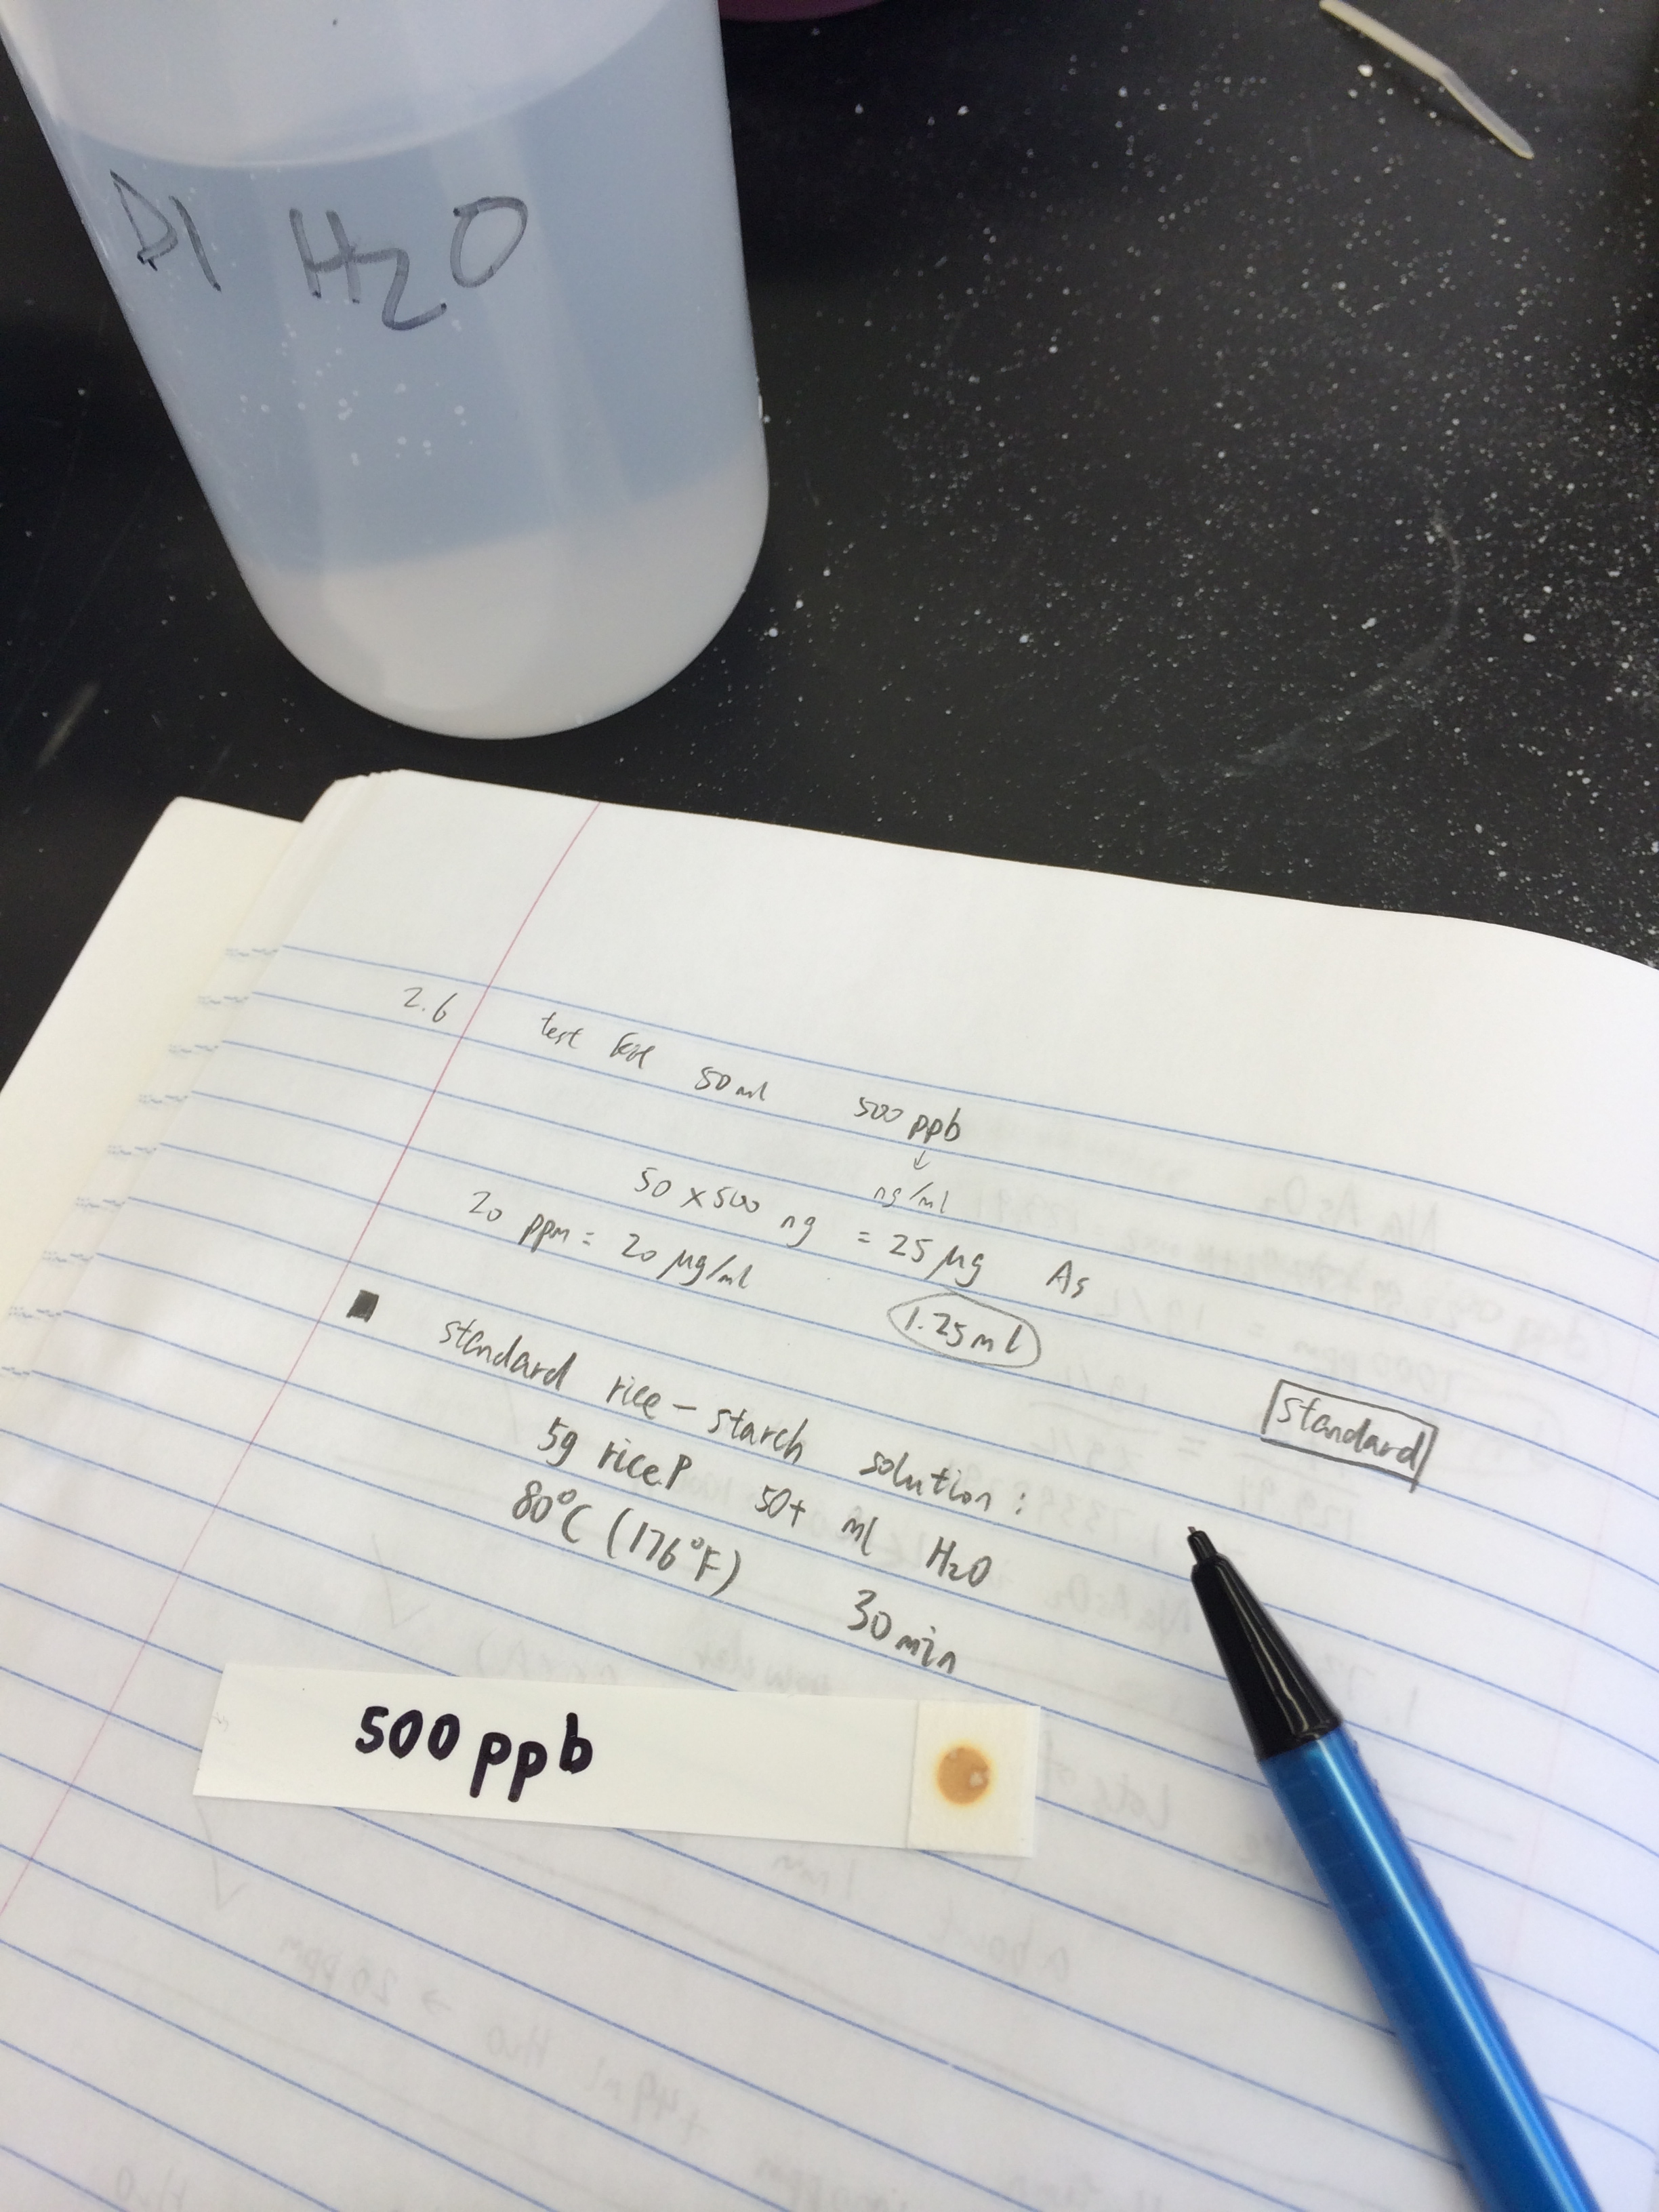 DI H2O
2.6 test 50ml 500 ppb
↓
ng/ml
50 × 500 ng = 25 μg As
20 ppm = 20 μg/ml 1.25ml
■ standard rice - starch solution : standard
5g rice.P 50+ ml H2O
80°C (176°F) 30min
500 ppb